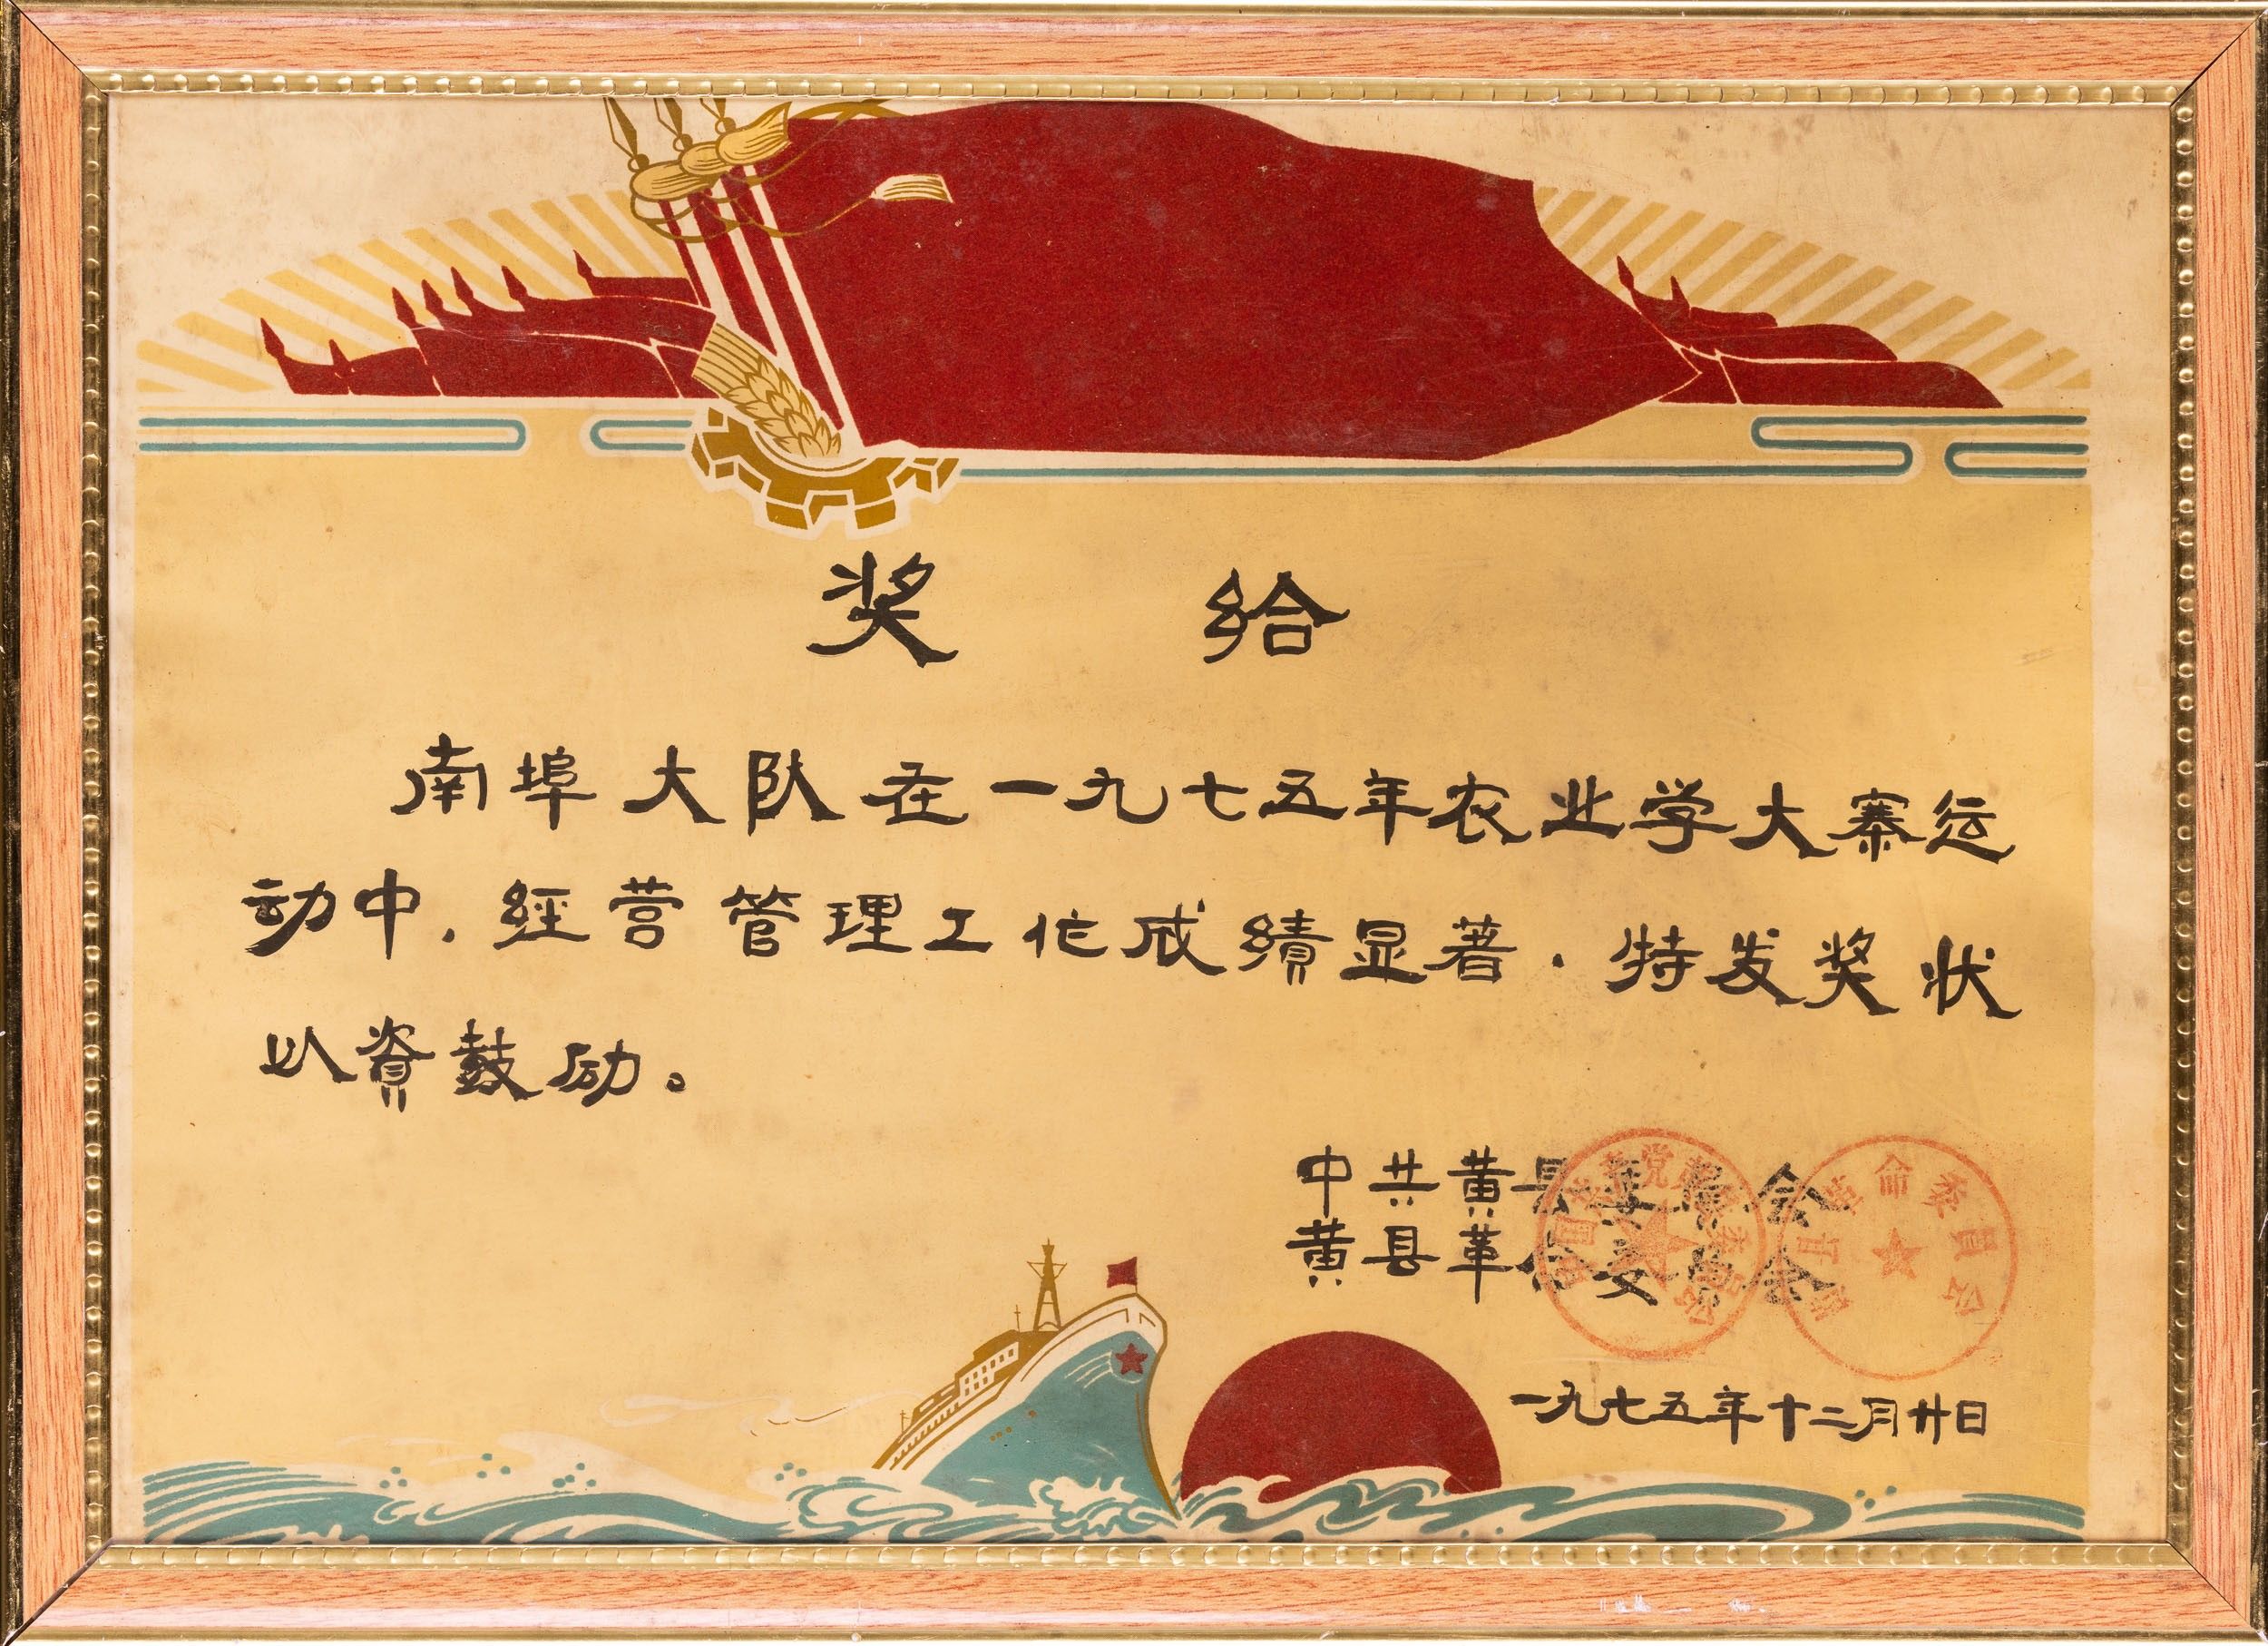 奖 给
南埠大队在一九七五年农业学大寨运
动中，經营管理工作成績显著，特发奖状
以資鼓励。
中共黄县委員会
黄县革命委員会
一九七五年十二月廿日